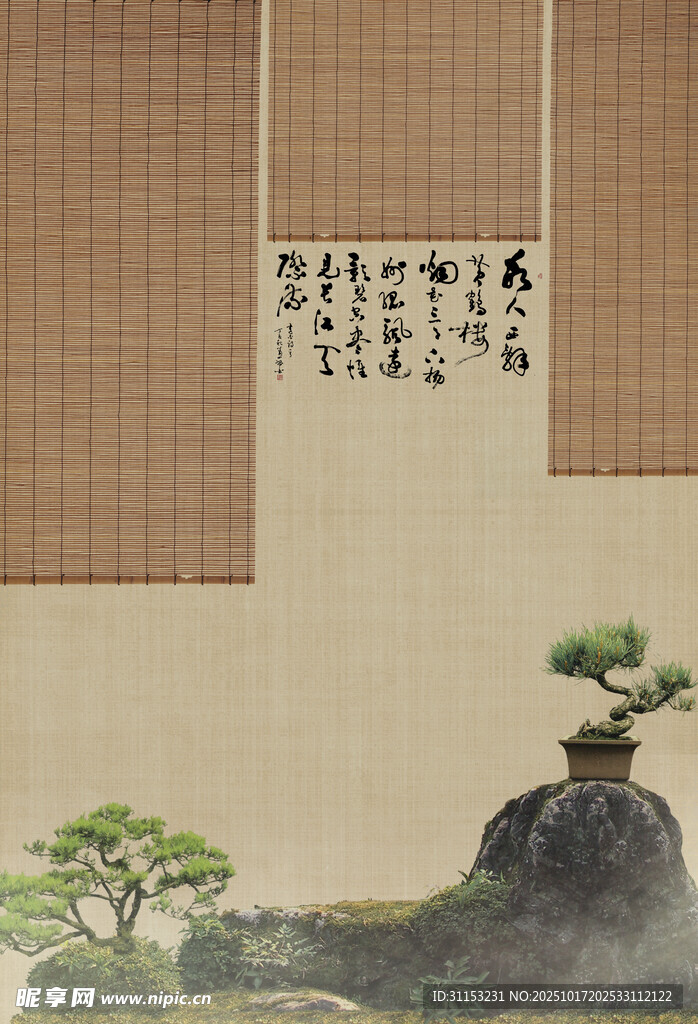 故人西辭
黄鶴楼
烟花三月下揚
州孤帆遠
影碧空盡惟
見長江天
際流
昵享网 www.nipic.cn
ID:31153231 NO:20251017202533112122